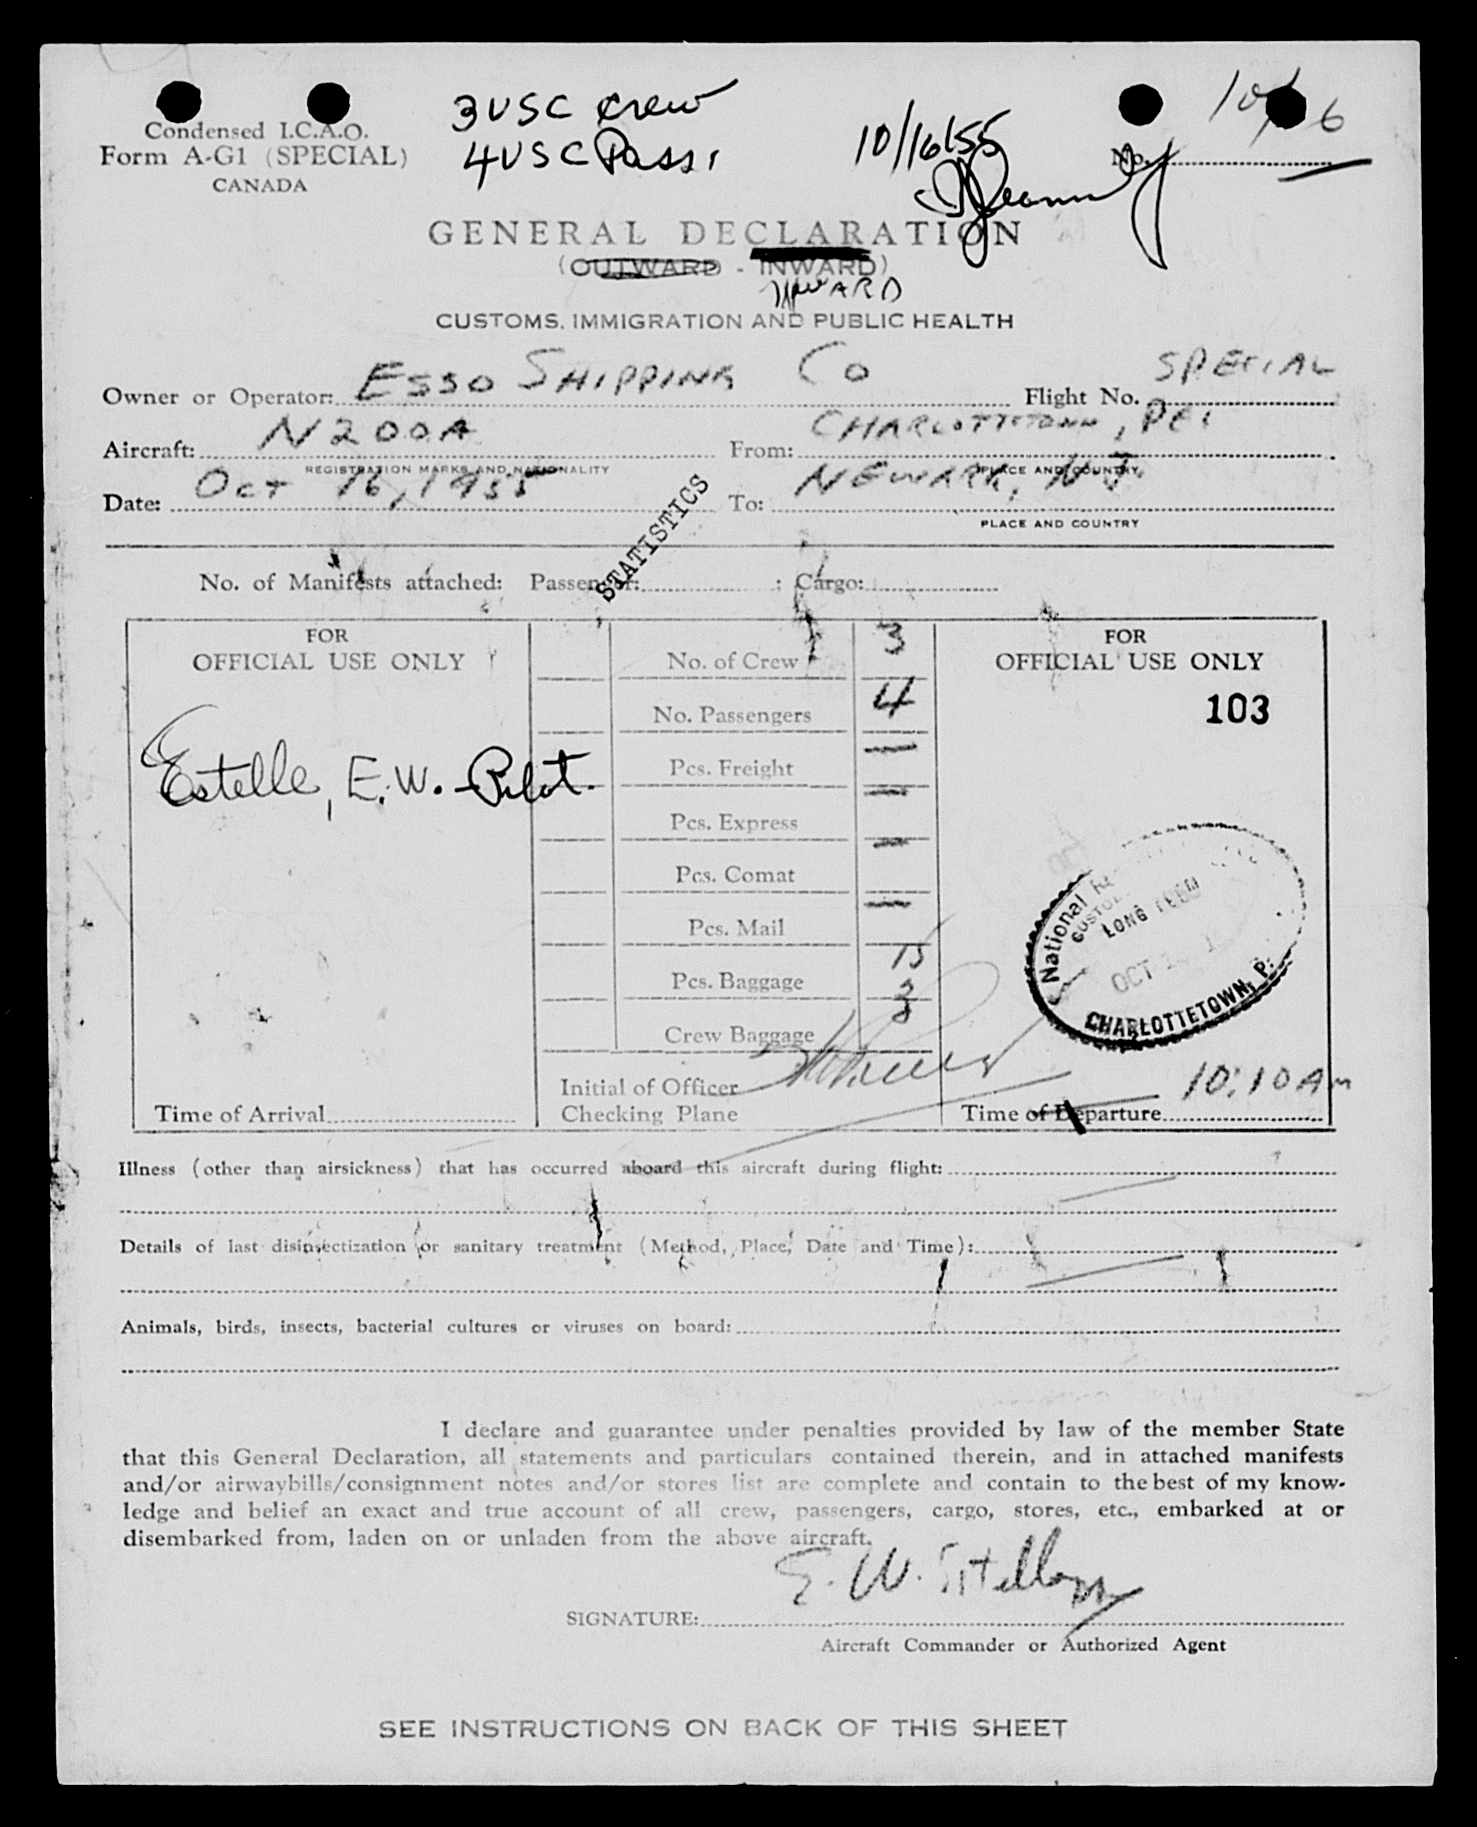 3 USC Crew
4 USC Pass.
10/16/55
10/16
Condensed I.C.A.O.
Form A-G1 (SPECIAL)
CANADA
No.
GENERAL DECLARATION
(OUTWARD - INWARD)
INWARD
CUSTOMS, IMMIGRATION AND PUBLIC HEALTH
Owner or Operator: ESSO SHIPPING CO Flight No. SPECIAL
Aircraft: N200A From: CHARLOTTETOWN, PEI
REGISTRATION MARKS AND NATIONALITY PLACE AND COUNTRY
Date: OCT 16, 1955 To: NEWARK, N.J.
PLACE AND COUNTRY
STATISTICS
No. of Manifests attached: Passenger: ; Cargo:
FOR
OFFICIAL USE ONLY
Estelle, E.W. - Pilot.
Time of Arrival
No. of Crew 3
No. Passengers 4
Pcs. Freight —
Pcs. Express —
Pcs. Comat —
Pcs. Mail —
Pcs. Baggage 15
Crew Baggage 3
Initial of Officer
Checking Plane
FOR
OFFICIAL USE ONLY
103
National
LONG
OCT
CHARLOTTETOWN, P.
10:10 AM
Time of Departure
Illness (other than airsickness) that has occurred aboard this aircraft during flight:
Details of last disinsectization or sanitary treatment (Method, Place, Date and Time):
Animals, birds, insects, bacterial cultures or viruses on board:
I declare and guarantee under penalties provided by law of the member State
that this General Declaration, all statements and particulars contained therein, and in attached manifests
and/or airwaybills/consignment notes and/or stores list are complete and contain to the best of my know-
ledge and belief an exact and true account of all crew, passengers, cargo, stores, etc., embarked at or
disembarked from, laden on or unladen from the above aircraft.
SIGNATURE: E. W. Estelle
Aircraft Commander or Authorized Agent
SEE INSTRUCTIONS ON BACK OF THIS SHEET